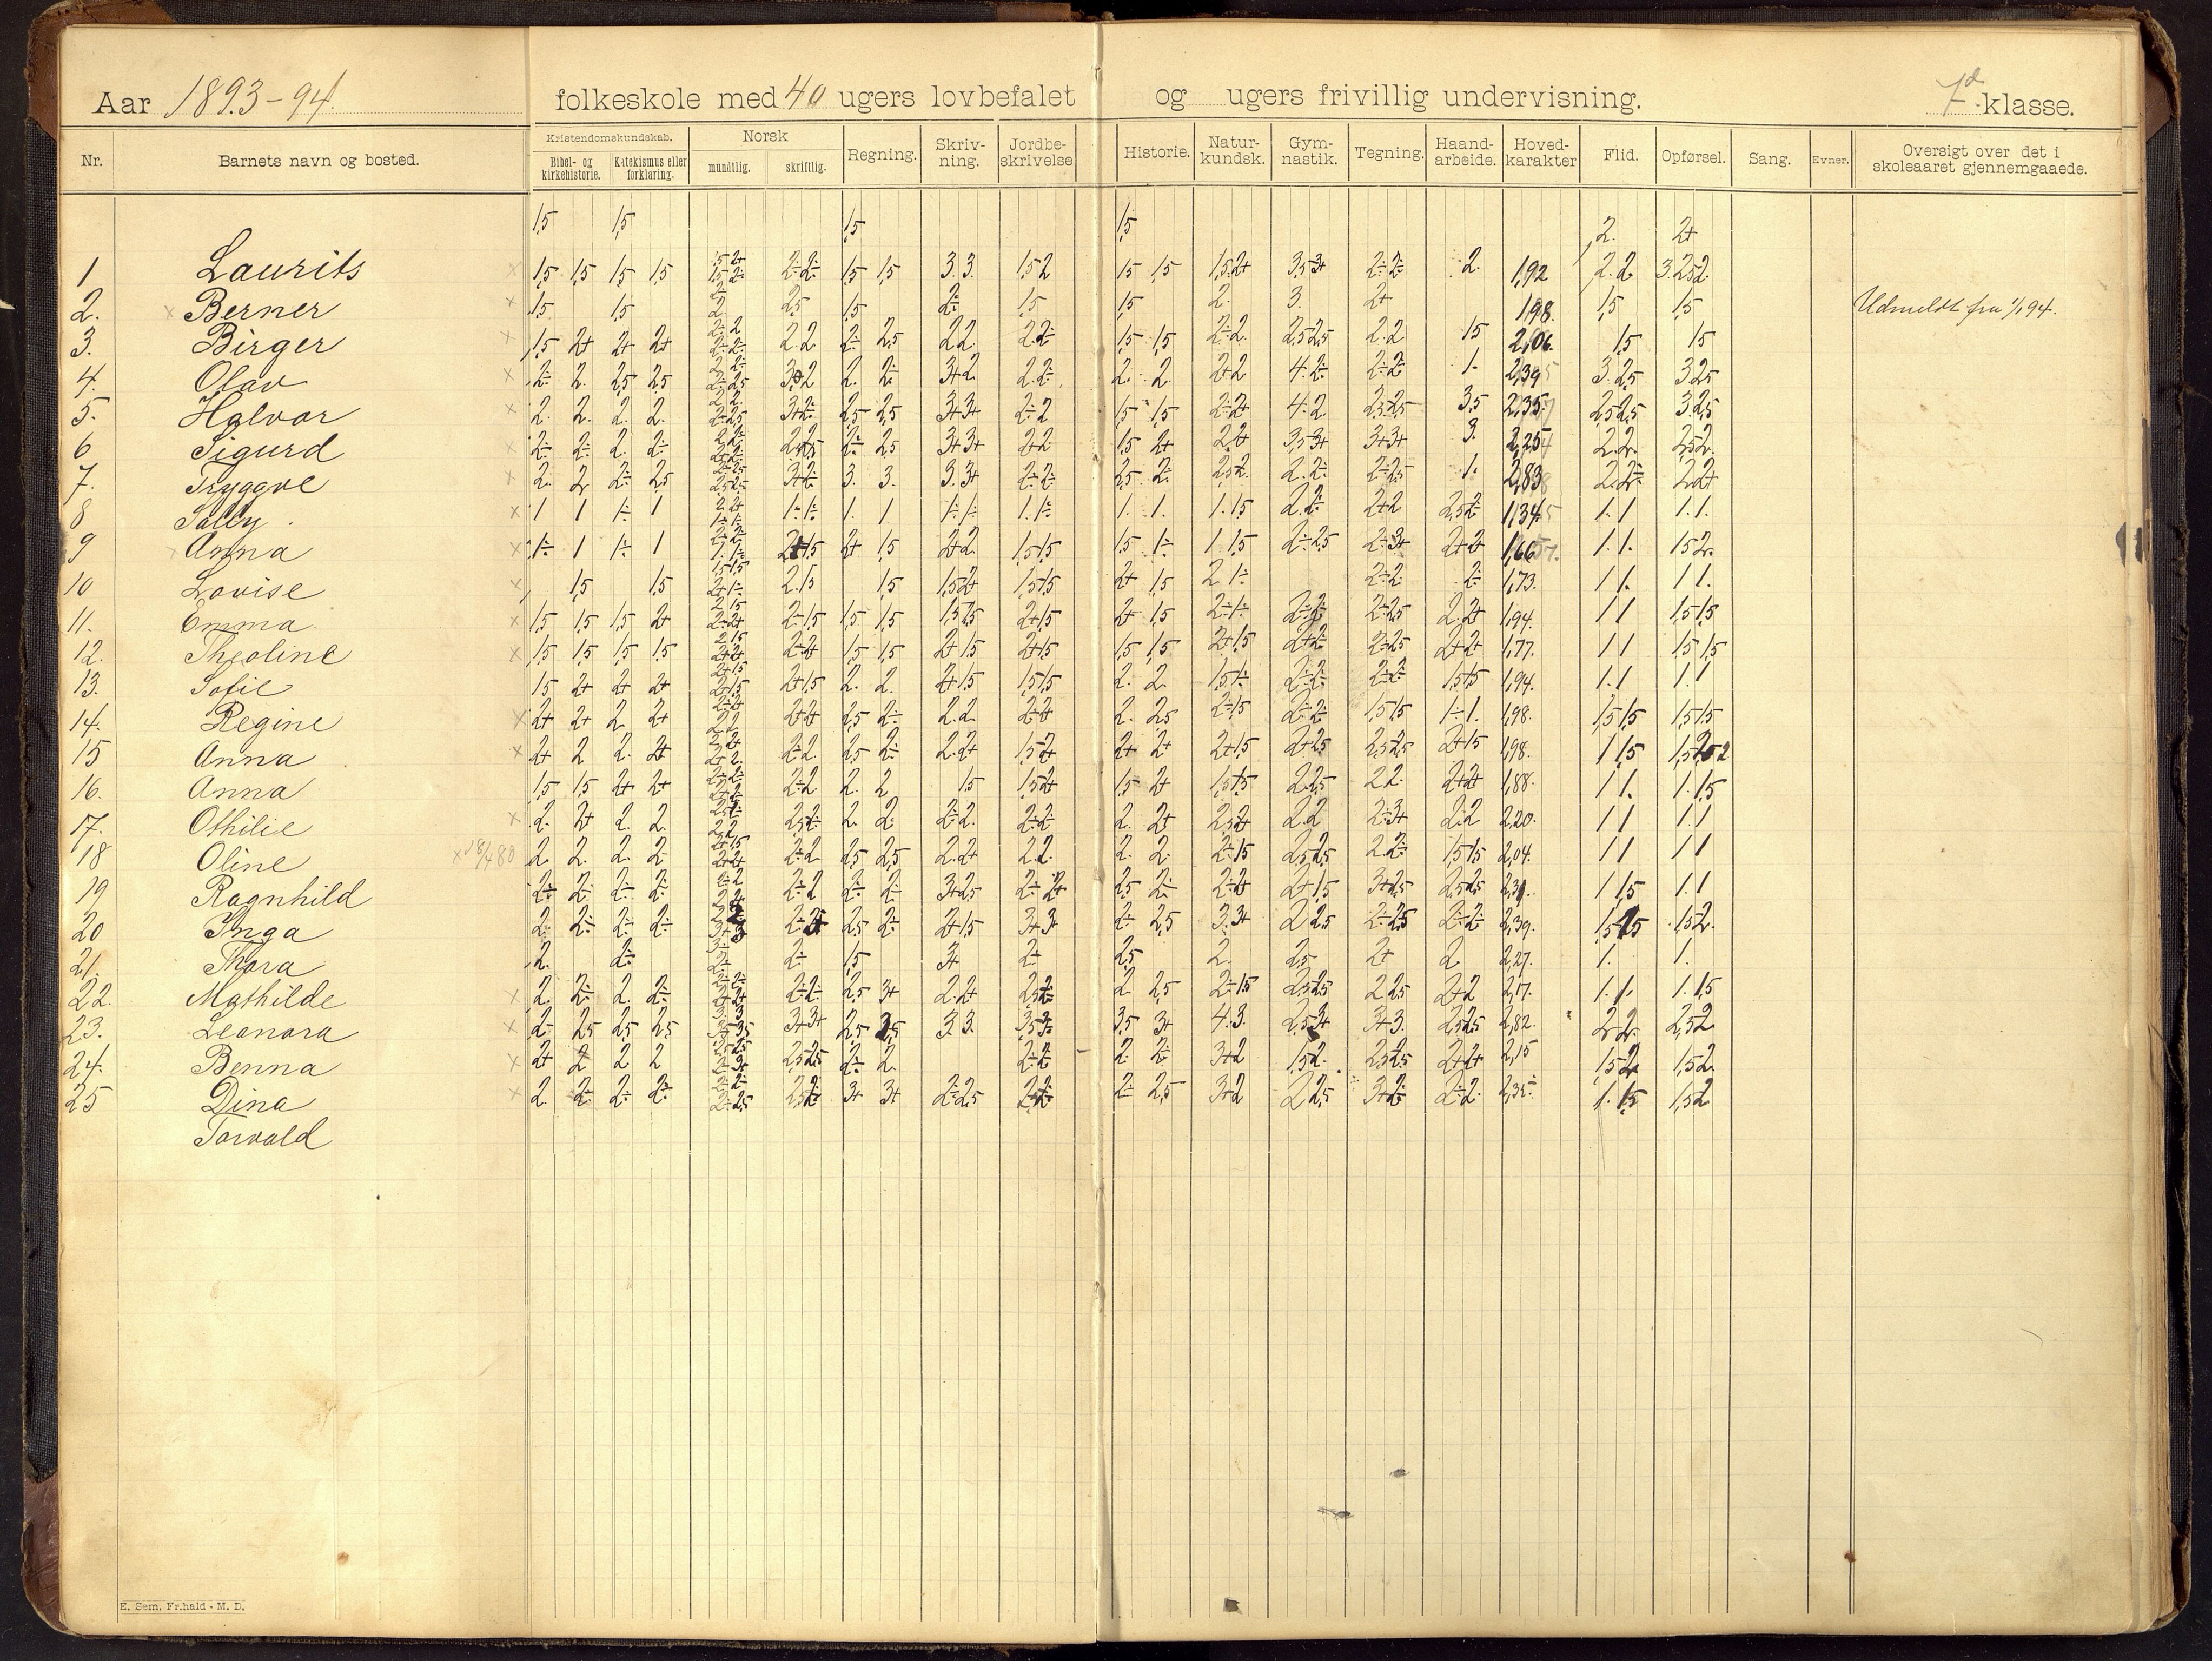 Aar 1893-94. folkeskole med 40 ugers lovbefalet og ugers frivillig undervisning. 7d klasse.
Nr. Barnets navn og bosted. Kristendomskundskab. Bibel- og kirkehistorie. Katekismus eller forklaring. Norsk mundtlig. skriftlig. Regning. Skriv-ning. Jordbe-skrivelse Historie. Natur-kundsk. Gym-nastik. Tegning. Haand-arbeide. Hoved-karakter Flid. Opførsel. Sang. Evner. Oversigt over det i skoleaaret gjennemgaaede.
1,5 1,5 1,5 1,5 2. 2+
1 Laurits 1,5 1,5 1,5 1,5 1,5 1,5 3. 3. 1,5 2 1,5 1,5 1,5 2+ 3,5 3+ 2÷ 2÷ 2. 1,92 2. 2. 3. 2,5 2.
2. Berner 1,5 1,5 2,5 1,5 2÷ 1,5 1,5 2. 3. 2+ 1,98. 1,5 1,5 Udmeldt fra 1/1 94.
3. Birger 1,5 2+ 2+ 2+ 2. 2 2÷ 2,5 2 2. 2. 2÷ 1,5 1,5 2÷ 2. 2,5 2,5 2. 2 1,5 2,06. 1,5 1,5
4. Olav 2÷ 2. 2,5 2,5 2. 2÷ 3+ 2. 2. 2÷ 2. 2. 2+ 2 4. 2÷ 2÷ 2÷ 1. 2,39 3. 2,5 3 2,5
5. Halvor 2. 2. 2. 2. 3+ 2÷ 2,5 2,5 3+ 3+ 2÷ 2 1,5 1,5 2÷ 2+ 4. 2. 2,5 2,5 3,5 2,35 2,5 2,5 3. 2,5
6 Sigurd 2÷ 2÷ 2. 2÷ 2÷ 2,5 3+ 3+ 2+ 2 1,5 2+ 2 2+ 3,5 3+ 3+ 3+ 3. 2,25 2. 2. 2,5 2.
7. Tryggve 2. 2 2÷ 2,5 3+ 2÷ 3. 3. 3. 3+ 2÷ 2÷ 2,5 2÷ 2,5 2. 2. 2÷ 2÷ 2,5 1. 2,83 2. 2÷ 2 2+
8 Sally 1 1 1÷ 1 1÷ 1÷ 1. 1 1÷ 1÷ 1. 1÷ 1. 1. 1. 1,5 2. 2÷ 2+ 2 2,5 2÷ 1,34 1. 1 1. 1.
9 Anna 1÷ 1 1÷ 1 2+ 1,5 2+ 1,5 2+ 2. 1,5 1,5 1,5 1÷ 1 1,5 2÷ 2,5 2÷ 3+ 2+ 2+ 1,66 1. 1. 1,5 2.
10 Lovise 1,5 1,5 2. 1,5 1,5 1,5 2+ 1,5 1,5 2+ 1,5 2 1÷ 2÷ 2. 2÷ 1,73. 1 1. 1 1.
11. Emma 1,5 1,5 1,5 2+ 2÷ 1,5 1,5 1,5 1,5 1,5 2+ 1,5 2+ 1,5 2÷ 1÷ 2÷ 2÷ 2÷ 2,5 2. 2+ 1,94. 1 1 1,5 1,5
12. Theoline 1,5 1,5 1,5 1,5 2÷ 2+ 1,5 1,5 2+ 1,5 2+ 1,5 1,5 1,5 2+ 1,5 2+ 2÷ 2÷ 2,5 2+ 2+ 1,77. 1 1 1,5 1,5
13. Sofie 1,5 2+ 2+ 2+ 2+ 1,5 2. 2. 2+ 1,5 1,5 1,5 2. 2. 1,5 1÷ 2÷ 2÷ 2÷ 2÷ 1,5 1,5 1,94. 1. 1 1. 1
14. Regine 2+ 2+ 2 2+ 2+ 2+ 2,5 2÷ 2. 2. 2÷ 2+ 2. 2,5 2÷ 1,5 2÷ 2÷ 1,5 1,5 1÷ 1. 1,98. 1,5 1,5 1,5 1,5
15 Anna 2+ 2 2. 2+ 2÷ 2. 2,5 2÷ 2. 2+ 1,5 2+ 2+ 2+ 2+ 1,5 2+ 2,5 2,5 2,5 2+ 1,5 1,98. 1 1,5 1,5 2
16. Anna 1,5 1,5 2+ 2+ 2÷ 2 2. 2 1,5 1,5 2+ 1,5 2+ 1,5 1,5 2. 2,5 2 2. 2+ 2+ 1,88. 1 1. 1. 1,5
17. Othilie 2. 2+ 2. 2. 2,5 2÷ 2. 2. 2÷ 2. 2÷ 2÷ 2. 2+ 2,5 2+ 2. 2 2÷ 3+ 2. 2 2,20. 1 1 1. 1
18 Oline x 18/4 80 2. 2. 2. 2. 2÷ 2 2,5 2,5 2. 2+ 2 2. 2. 2. 2÷ 1,5 2,5 2,5 2. 2÷ 1,5 1,5 2,04. 1 1 1 1
19 Ragnhild 2÷ 2÷ 2÷ 2÷ 2÷ 2 2÷ 2÷ 3+ 2,5 2÷ 2+ 2,5 2÷ 2÷ 2+ 2+ 1,5 3+ 2,5 2,5 2,5 2,31. 1 1,5 1. 1
20 Inga 2÷ 2÷ 2÷ 2÷ 2,5 2÷ 2+ 1,5 3+ 3+ 2÷ 2,5 3. 3+ 2 2,5 2÷ 2,5 2÷ 2÷ 2,39. 1,5 1,5 1,5 2.
21. Thora 2. 2÷ 2÷ 1,5 3+ 2÷ 2,5 2. 2,5 2+ 2 2,27. 1. 1.
22. Mathilde 2. 2÷ 2. 2÷ 2÷ 2÷ 2,5 3+ 2. 2+ 2,5 2÷ 2. 2,5 2÷ 1,5 2,5 2,5 2 2,5 2+ 2 2,17. 1. 1. 1. 1,5
23. Leonora 2÷ 2,5 2,5 2,5 3+ 3+ 2,5 3,5 3 3. 3,5 3÷ 3,5 3+ 4. 3. 2,5 3+ 3+ 3. 2,5 2,5 2,82. 2 2. 2,5 2
24. Benna 2+ 2 2 2 2,5 2,5 2÷ 2. 2÷ 2÷ 2. 2÷ 3+ 2 1,5 2. 2,5 2,5 2+ 2+ 2,15 1,5 2. 1,5 2.
25 Dina 2. 2÷ 2÷ 2÷ 2,5 2÷ 3+ 3+ 2÷ 2,5 2÷ 2÷ 2÷ 2,5 3+ 2 2 2,5 3+ 2÷ 2÷ 2. 2,35 1. 1,5 1,5 2
Torvald
E. Sem, Fr.hald - M. D.